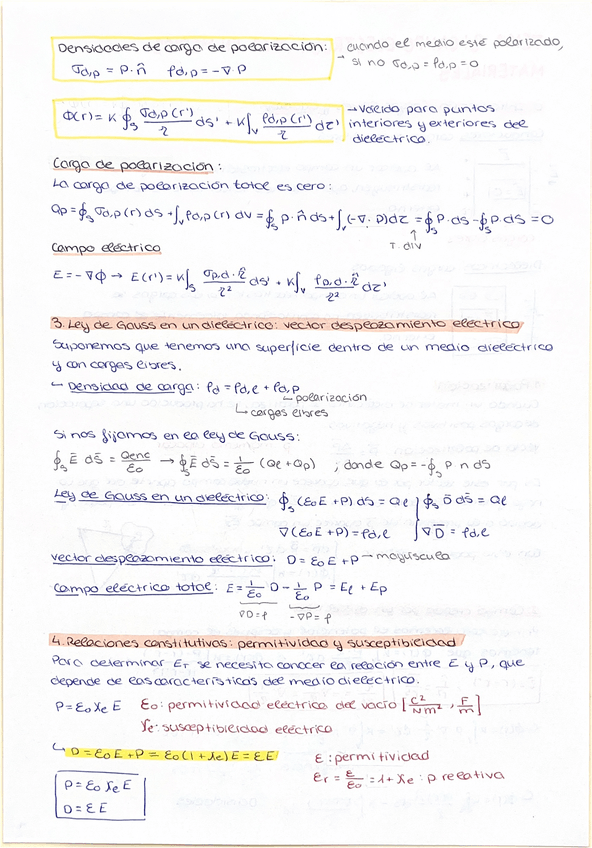 Densidades de carga de polarización: → cuando el medio esté polarizado,
σd,p = P · n̂   ρd,p = -∇ · P   si no σd,p = ρd,p = 0
Φ(r) = K ∮s σd,p(r')/𝓇 ds' + K∫v ρd,p(r')/𝓇 dτ' → Válido para puntos
interiores y exteriores del
dieléctrico.
Carga de polarización:
La carga de polarización total es cero:
Qp = ∮s σd,p(r) ds + ∫v ρd,p(r) dv = ∮s P · n̂ ds + ∫v (-∇ · P)dτ = ∮s P · ds - ∮s P · ds = 0
↑
T. div
Campo eléctrico
E = -∇Φ → E(r') = K∫s σp,d · 𝓇̂/𝓇² ds' + K∫v ρp,d · 𝓇̂/𝓇² dτ'
3. Ley de Gauss en un dieléctrico: vector desplazamiento eléctrico
Suponemos que tenemos una superficie dentro de un medio dieléctrico
y con cargas libres.
↳ Densidad de carga: ρd = ρd,l + ρd,p
↳ polarización
↳ cargas libres
Si nos fijamos en la ley de Gauss:
∮s Ē ds̄ = Qenc/ε₀ → ∮s Ē ds̄ = 1/ε₀ (Ql + Qp) ; donde Qp = -∮s P n ds
Ley de Gauss en un dieléctrico: ∮s (ε₀E + P) ds = Ql   ∮s D̄ ds̄ = Ql
∇(ε₀E + P) = ρd,l   ∇D̄ = ρd,l
vector desplazamiento eléctrico: D = ε₀E + P → mayúscula
Campo eléctrico total: E = 1/ε₀ D - 1/ε₀ P = El + Ep
∇D = ρ   -∇P = ρ
4. Relaciones constitutivas: permitividad y susceptibilidad
Para determinar ET se necesita conocer la relación entre E y P, que
depende de las características del medio dieléctrico.
P = ε₀ χe E   ε₀: permitividad eléctrica del vacío [C²/Nm², F/m]
χe: susceptibilidad eléctrica
↳ D = ε₀E + P = ε₀(1 + χe)E = εE   ε: permitividad
εr = ε/ε₀ = 1 + χe : p relativa
P = ε₀ χe E
D = εE